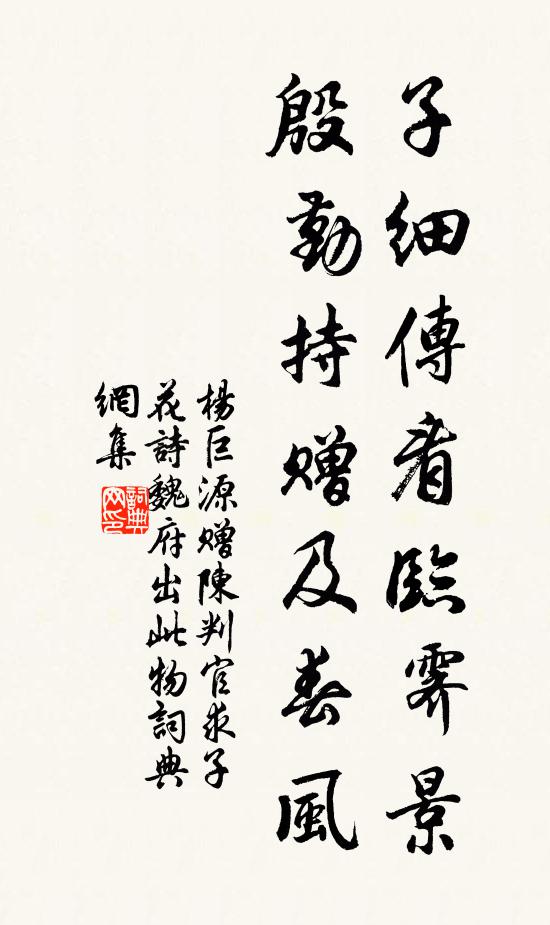 子細傳看臨霽景
殷勤持贈及春風
楊巨源贈陳判官求子
花詩魏府出此物詞典
網集
詞典網印